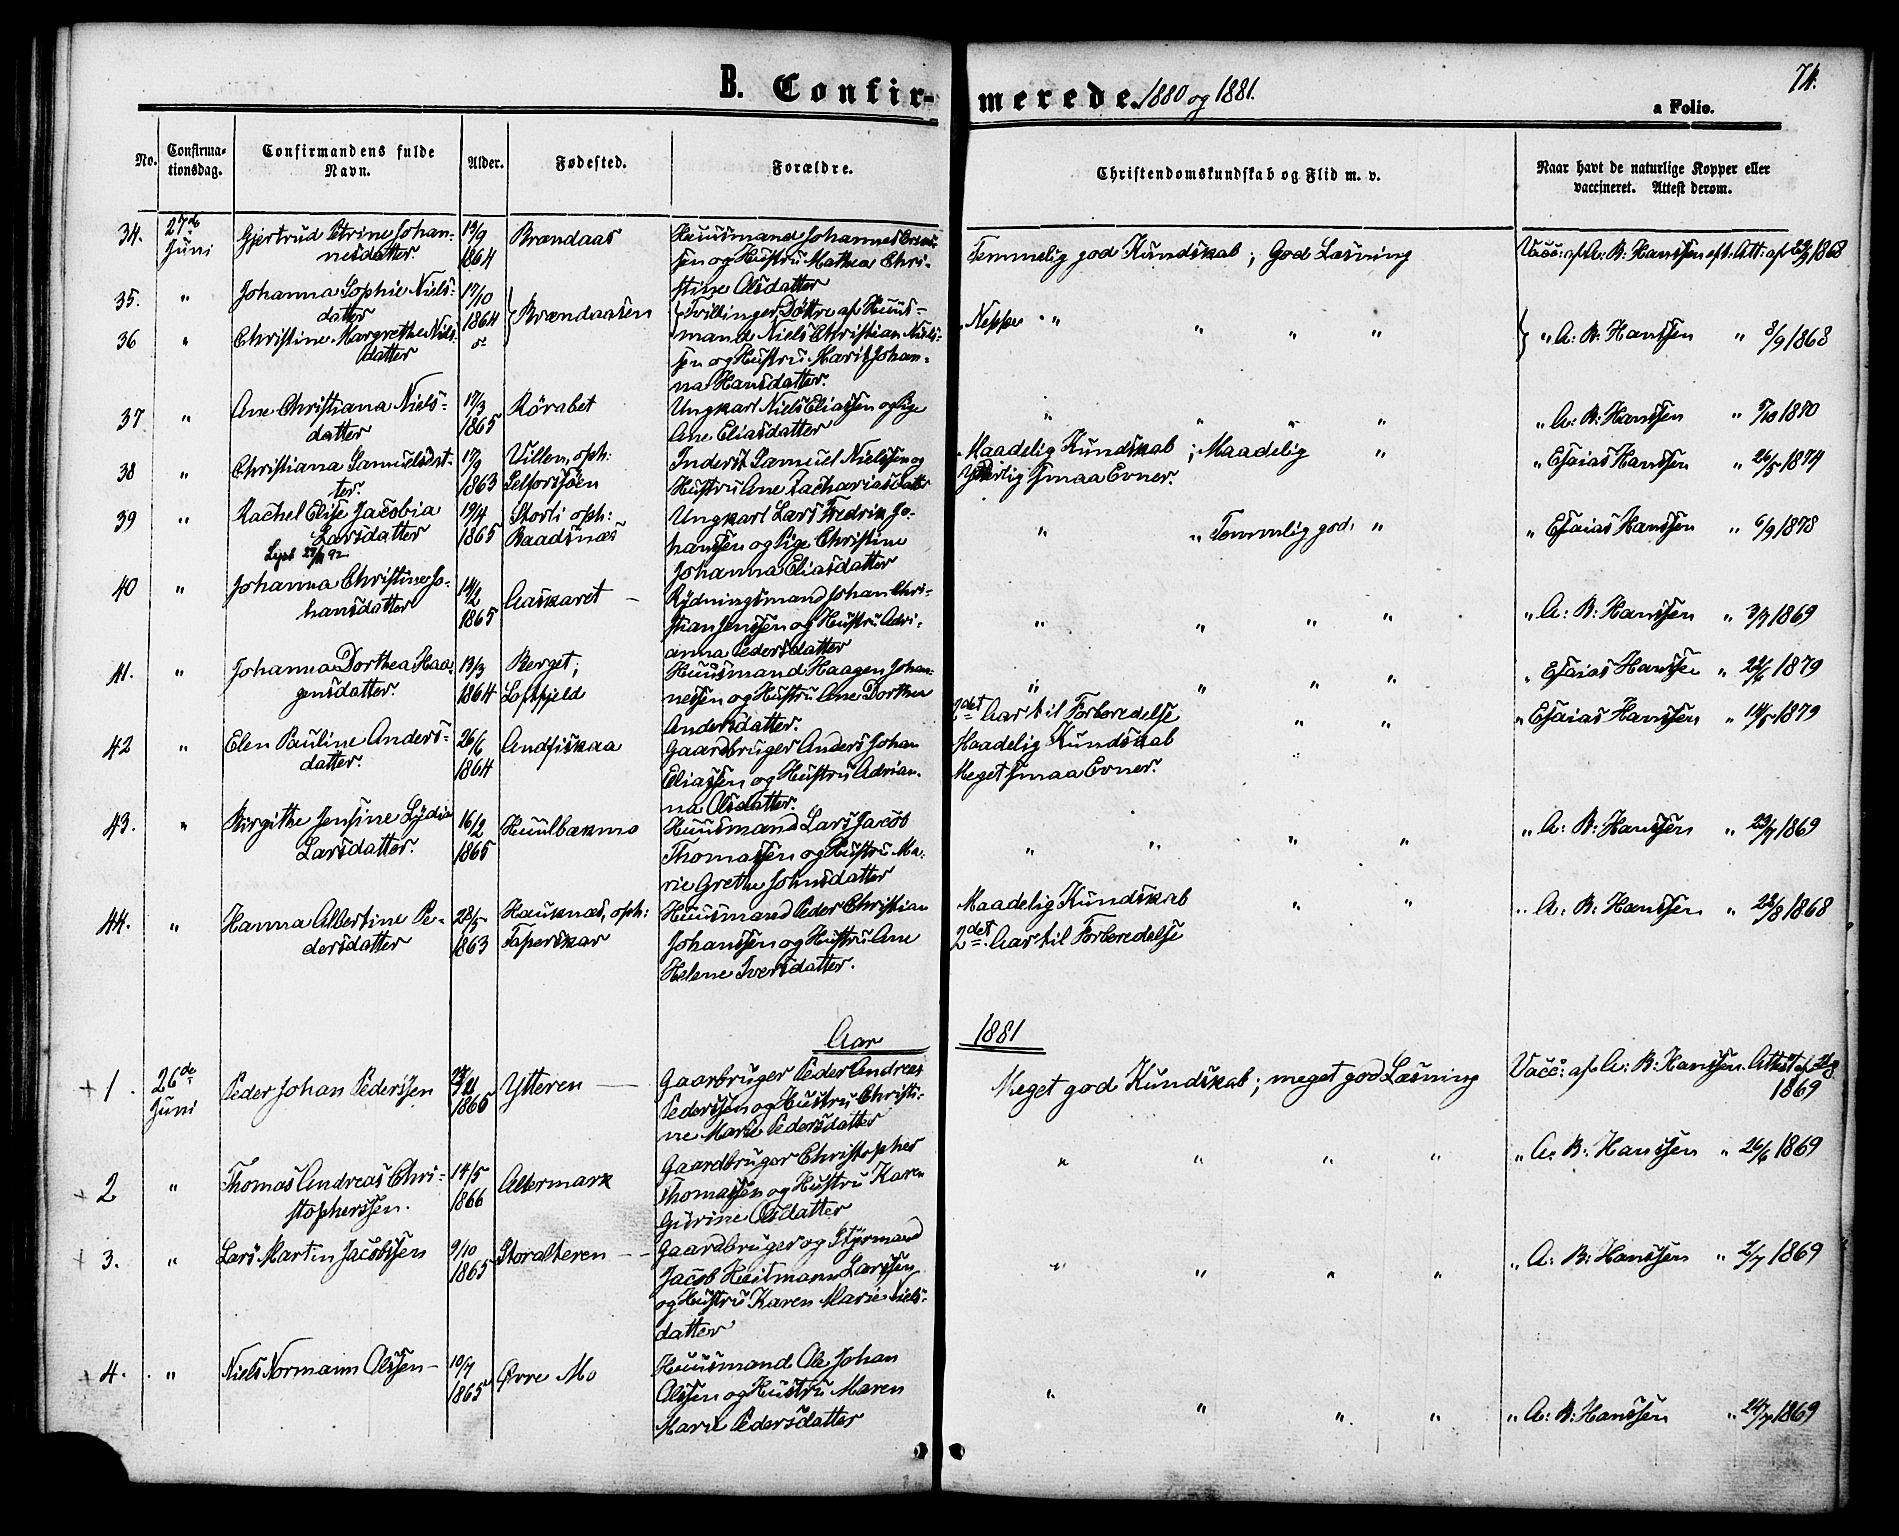 B. Confir-
merede. 1880 og 1881.
74.
a Folio.
No.
Confirma-
tionsdag.
Confirmandens fulde
Navn.
Alder.
Fødested.
Forældre.
Christendomskundskab og Flid m. v.
Naar havt de naturlige Kopper eller
vaccineret. Attest derom.
34.
27de
Juni
Gjertrud Petrine Johan-
nesdatter.
13/9
1864
Brændaas
Huusmand Johannes
sen og Hustru Mathea Chri-
stine Olsdatter
Temmelig god Kundskab; God Læsning
Vacc: af A: B: Hanssen eft: Att: af 1868
35.
"
Johanna Sophie Niels-
datter
17/10
1864
Brændaasen
Tvillinger Døttre af Huus-
mand Niels Christian Niels-
sen og Hustru Marit Johan-
na Hansdatter.
Neppe " " " " "
" A: B: Hanssen " 8/9 1868
36
"
Christine Margrethe Niels-
datter
37
"
Ane Christiana Niels-
datter
17/3
1865
Rørabet
Ungkarl Niels Eliassen og Pige
Ane Eliasdatter
" " " "
" A: B: Hanssen " 1870
38
"
Christiana Samuelsdat-
ter.
17/9
1863
Villen, oph:
Selforssøen
Inderst Samuel Nielssen og
Hustru Ane Zachariasdatter
Maadelig Kundskab; Maadelig "
smaa Evner.
" Esaias Hanssen " 26/5 1874
39
"
Rachel Elise Jacobia
Larsdatter
19/4
1865
Storli oph:
Baadsnæs
Ungkarl Lars Fredrik Jo-
hanssen og Pige Christine
Johanna Eliasdatter
" " Temmelig god. "
" Esaias Hanssen " 6/9 1878
40
"
Johanna Christine Jo-
hansdatter
14/2
1865
Aaskaret
Rydningsmand Johan Chri-
stian Jenssen og Hustru Adri-
anna Pedersdatter
" " " "
" A: B: Hanssen " 3/9 1869
41.
"
Johanna Dorthea Haa-
gensdatter.
13/3
1864
Berget;
Loftfjeld
Huusmand Haagen Johan-
nessen og Hustru Ane Dorthea
Andersdatter.
" " " "
" Esaias Hanssen " 22/6 1879
42
"
Elen Pauline Anders-
datter.
26/6
1864
Andfiskaa
Gaardbruger Anders Johan
Eliassen og Hustru Adrian-
na Olsdatter.
2det Aar til Forberedelse
Maadelig Kundskab " "
Meget smaa Evner.
" Esaias Hanssen " 14/5 1879
43.
"
Birgithe Jensine Lydia
Larsdatter.
16/2
1865
Huulbækmo
Huusmand Lars Jacob
Thomassen og Hustru Ma-
rie Grethe Johnsdatter
" " " "
" A: B: Hanssen " 23/7 1869
44.
"
Hanna Albertine Pe-
dersdatter
28/5
1863
Hauknæs, oph:
Taperskar
Huusmand Peder Christian
Johanssen og Hustru Ane
Helene Iversdatter.
Maadelig Kundskab " "
2det Aar til Forberedelse
" A: B: Hanssen " 22/8 1868
Aar 1881
+ 1.
26de
Juni
Peder Johan Pederssen
1865
Ytteren
Gaarbruger Peder Andreas
Pederssen og Hustru Christi-
ne Marie Pedersdatter
Meget god Kundskab; meget god Læsning
Vacc: af A: B: Hanssen. Attest af
1869
+ 2
"
Thomas Andreas Chri-
stopherssen.
14/5
1866
Altermark
Gaardbruger Christopher
Thomassen og Hustru Karen
Gurine Olsdatter
" " " "
" A: B: Hanssen " 26/6 1869
+ 3.
"
Lars Martin Jacobssen
9/10
1865
Storalteren
Gaardbruger og Styrmand
Jacob Heitmann Larssen
og Hustru Karen Marie Niels-
datter
" " " "
" A: B: Hanssen " 2/7 1869
+ 4.
"
Niels Normann Olssen
10/7
1865
Øvre Mo
Huusmand Ole Johan
Olssen og Hustru Maren
Marie Pedersdatter
" " " "
" A: B: Hanssen " 24/7 1869